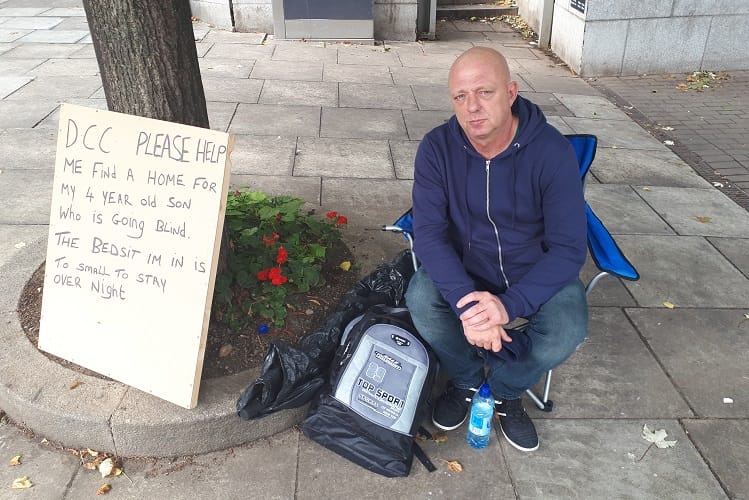 DCC PLEASE HELP
ME FIND A HOME FOR
MY 4 YEAR OLD SON
WHO IS GOING BLIND.
THE BEDSIT IM IN IS
TO SMALL TO STAY
OVER NIGHT
TOP SPORT